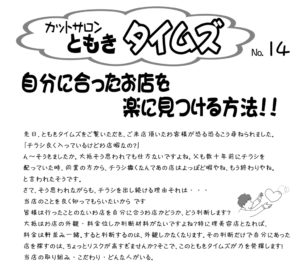 カットサロン
ともき タイムズ
No. 14
自分に合ったお店を
楽に見つける方法!!
先日、ともきタイムズをご覧いただき、ご来店頂いたお客様が恐る恐るこう尋ねられました。
「チラシ良く入っているけどお店暇なの?」
ん〜そうもましたか。大抵そう思われても仕方ないですよね。父も数十年前にチラシを
配っていた時、同業の方から、チラシ書くなんてあの店はよっぽど暇やね。もう終わりやね。
と言われたそうです。
さて、そう思われながらも、チラシを出し続ける理由それは・・・
当店のことを良く知ってもらいたいから です
皆様は行ったことのないお店を自分に合うお店かどうか、どう判断します?
大抵はお店の外観・料金位しか判断材料がないですよね?特に理美容店となれば、
料金は軒並み一緒。すると判断するのは、外観しかなくなります。その判断だけで自分にあった
店を探すのは、ちょっとリスクが高すぎませんか?そこで、このともきタイムズが力を発揮します!
当店の取り組み・こだわり・どんな人がいる。